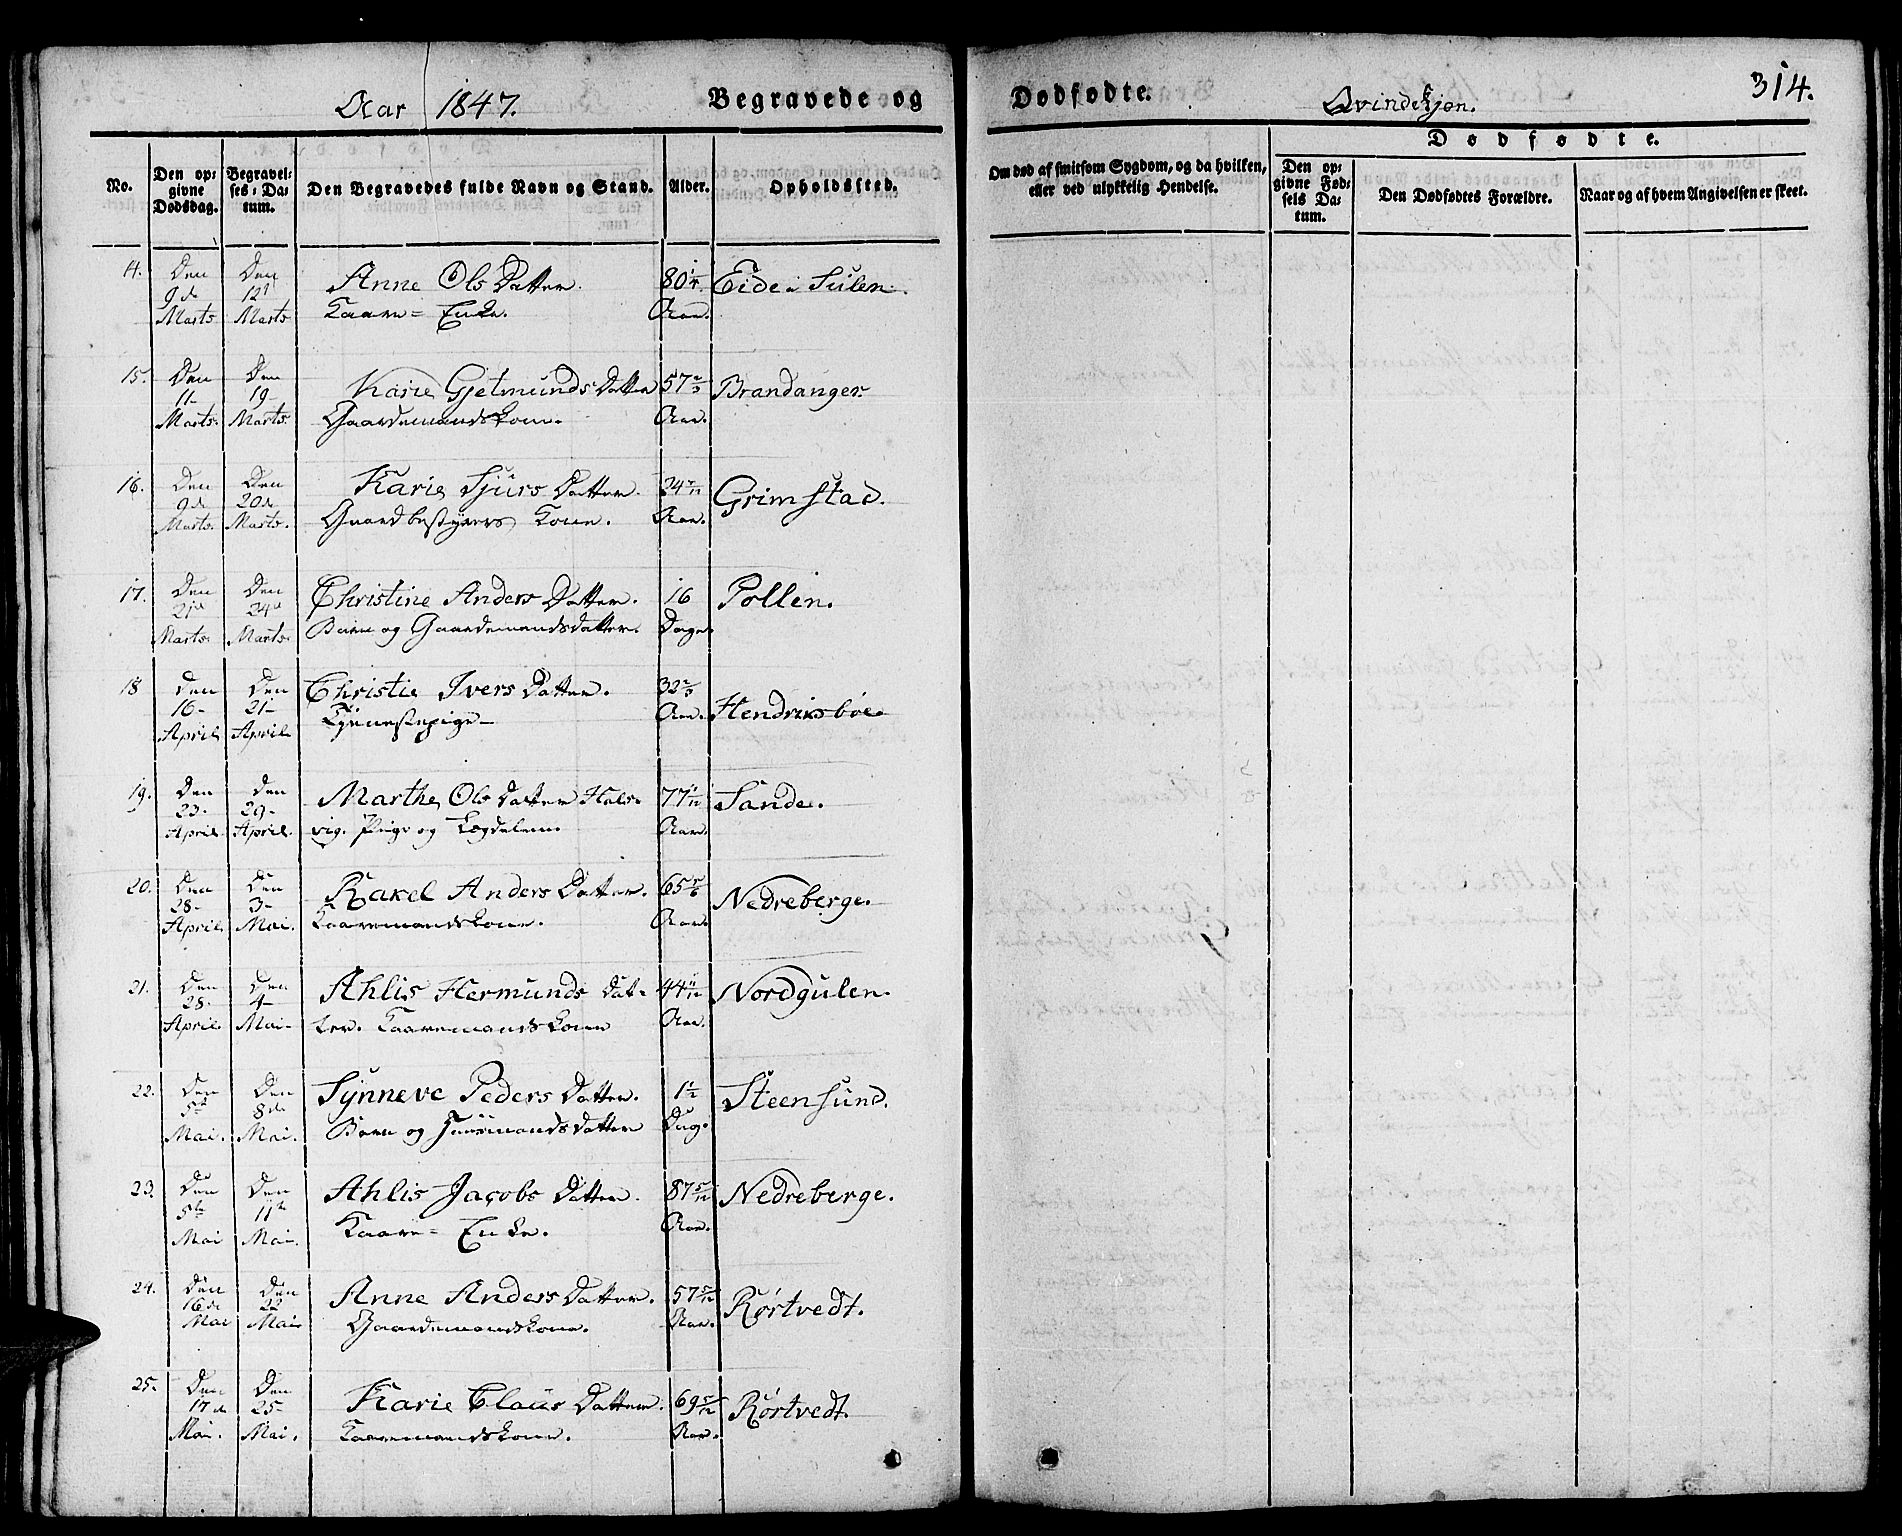 Aar 1847. Begravede og Dødfødte. Qvindekjøn. 314.
Dødfødte.
No. Den opgivne Dødsdag. Begravelses-Datum. Den Begravedes fulde Navn og Stand. Alder. Opholdssted. Om død af smitsom Sygdom, og da hvilken, eller ved ulykkelig Hendelse. Den opgivne Fødsels Datum. Den Dødfødtes Forældre. Naar og af hvem Angivelsen er skeet.
14. Den Den Anne Ols Datter. 80 Eide i Sulen.
9de 12te
Marts Marts Kaare= Enke. Aar.
15. Den Den Karie Gjetmunds Datter 57 2/3 Brandanger.
11- 19-
Marts. Marts. Gaardemandskone. Aar.
16. Den Den Karie Sjurs Datter. Grimstad.
9de 20de
Marts. Marts. Gaardbestyrers Kone. Aar.
17. Den Den Christine Anders Datter. 16 Pollen.
21de 24de
Marts. Marts. Barn og Gaardemandsdatter. Dage.
18 Den Den Christie Ivers Datter. 32 2/3
16- 21- Tjenestepige- Aar. Hendriksbøe
April April.
19. Den Den Marthe Ols Datter Hals- 77 1/12 Sande.
23- 29-
April. April. vig. Pige og Lægdslem. Aar.
20. Den Den Rakel Anders Datter. 65 5/6 Nedreberge.
28- 3-
April. Mai. Kaaremandskone. Aar.
21. Den Den Ahlis Hermunds Dat- 44 11/12 Nordgulen.
28- 4-
April. Mai- ter. Kaaremandskone Aar.
22. Den Den Synneve Peders Datter. 1 1/2 Steensund.
5te 8de
Mai. Mai. Barn og Huusmandsdatter Dag.
23. Den Den Ahlis Jacobs Datter. 87 5/12 Nedreberge.
5te 11te
Mai Mai. Kaare= Enke. Aar.
24. Den Den Anne Anders Datter. 57 5/12 Rørtvedt.
16de 22
Mai Mai Gaardemandskone. Aar.
25. Den Den Karie Claus Datter. 69 5/12 Rørtvedt.
17de 25-
Mai. Mai. Kaaremandskone. Aar.